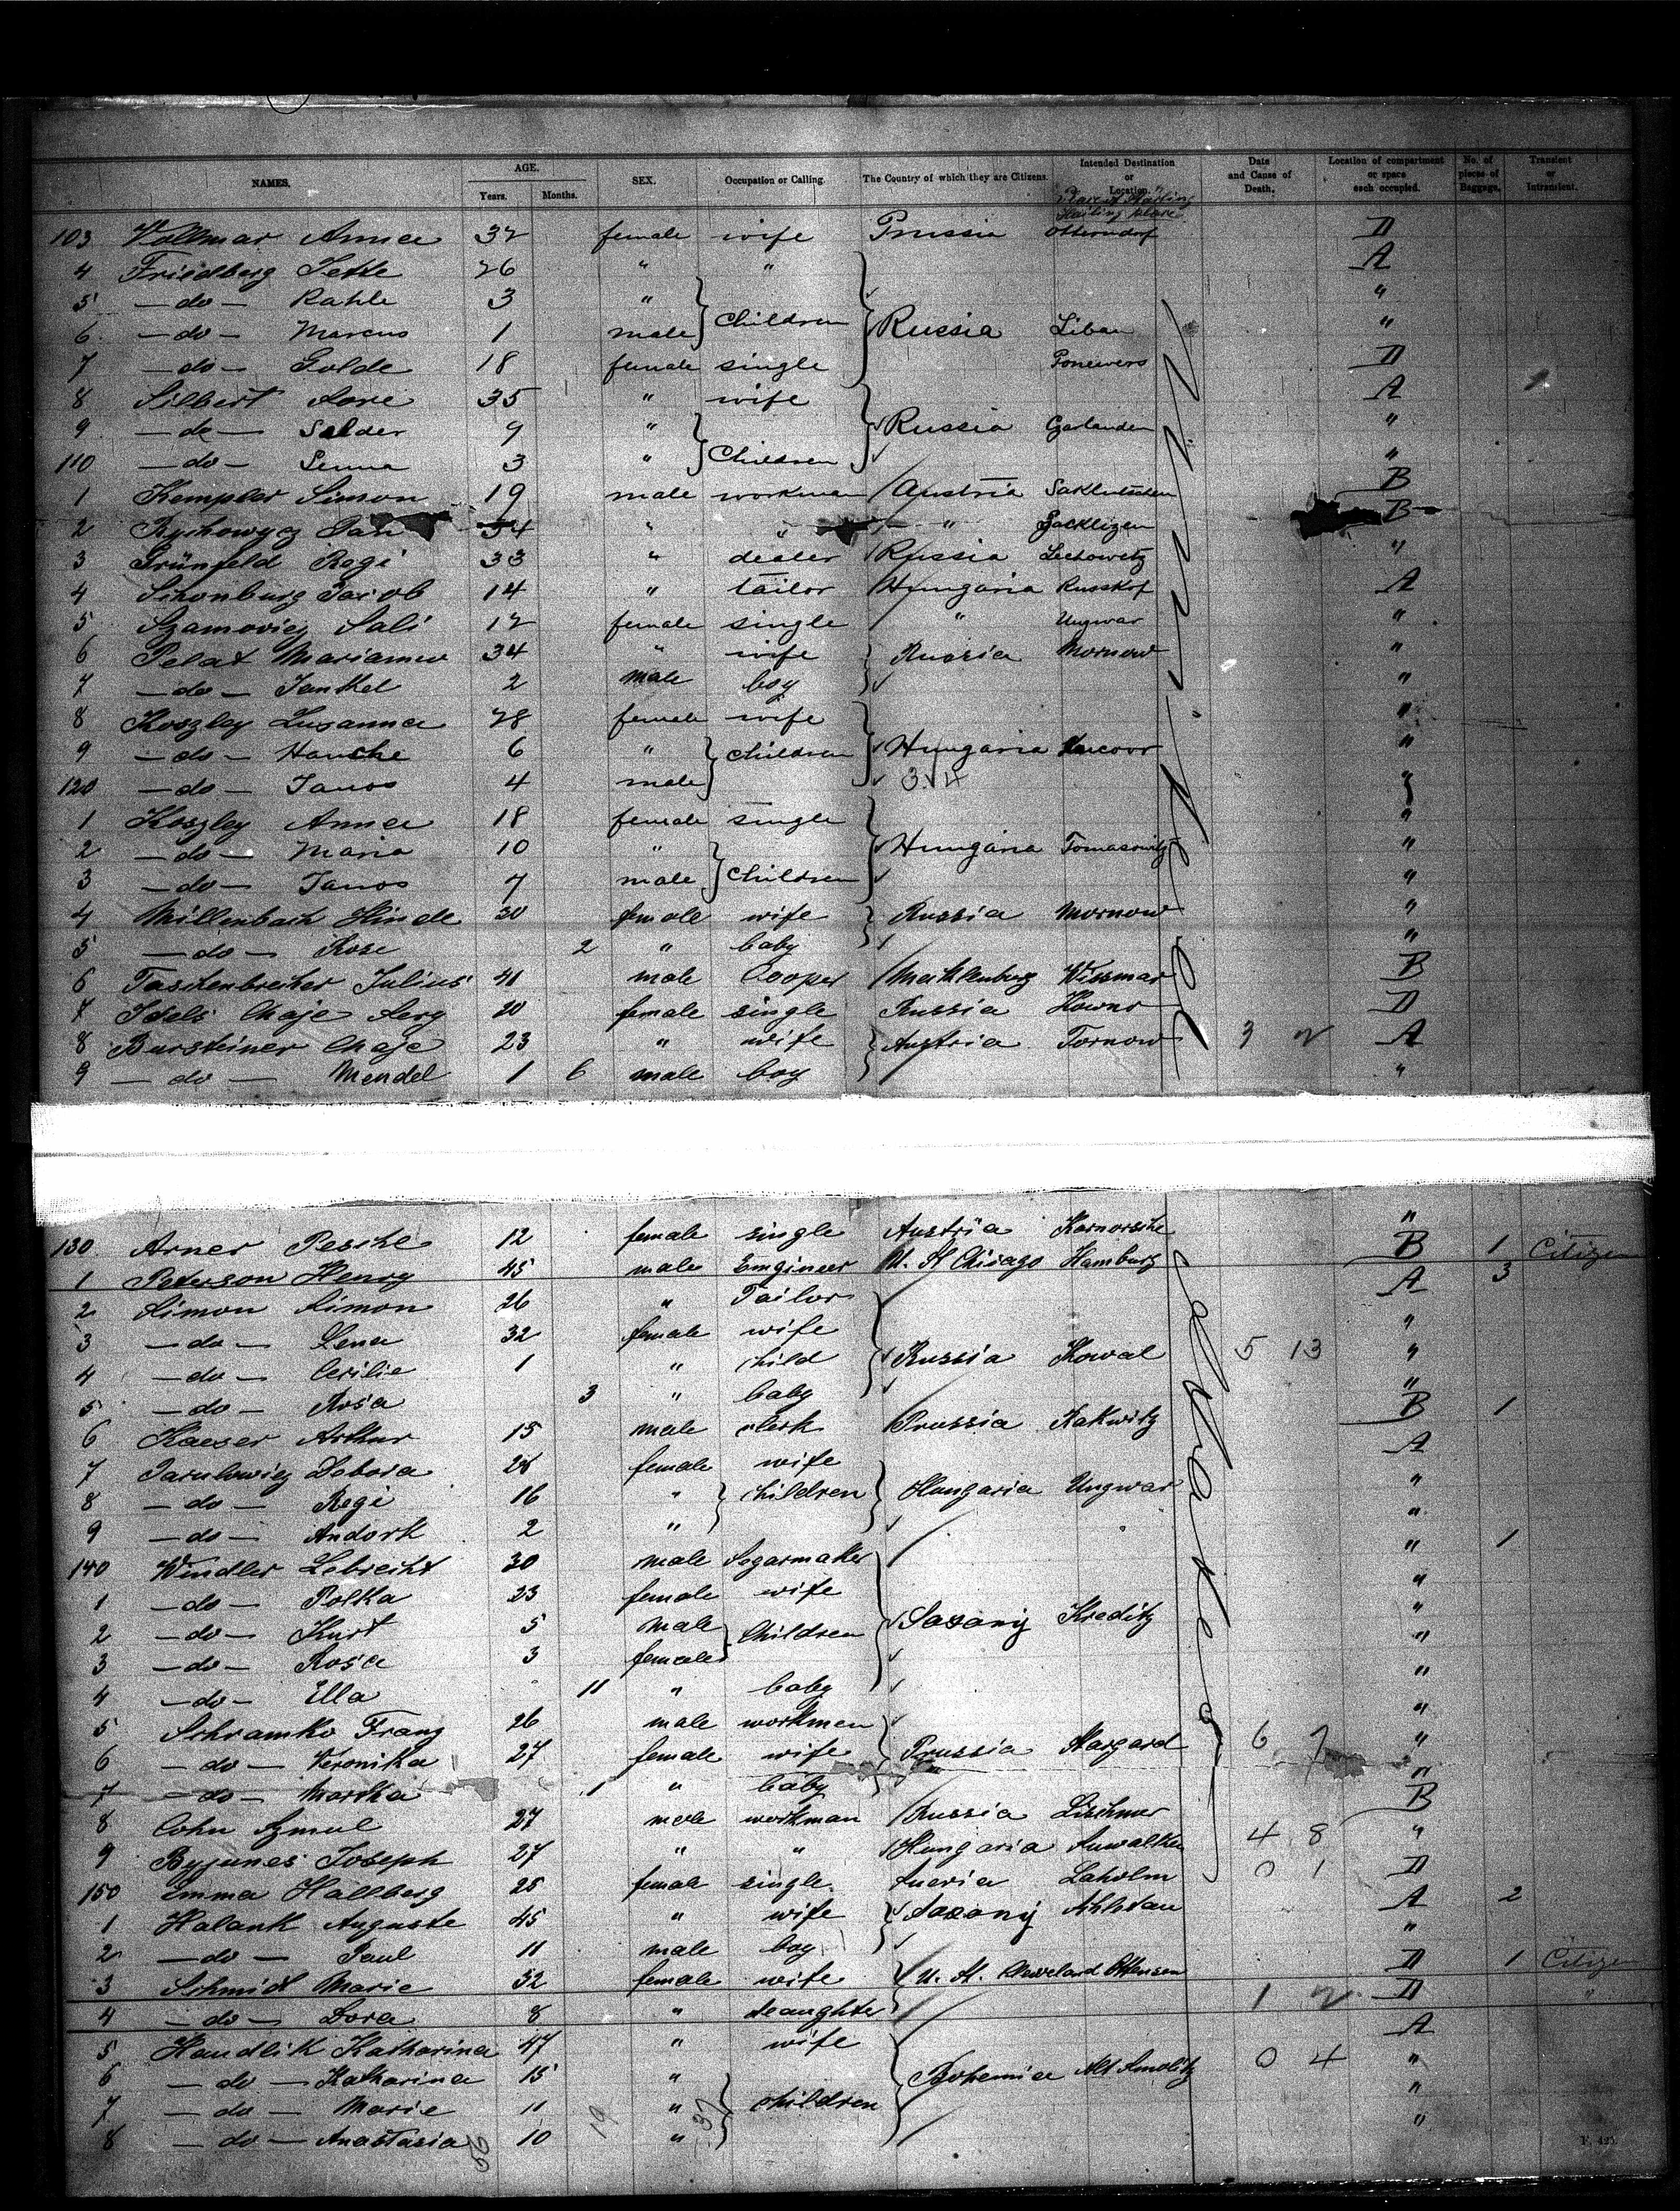 NAMES. AGE. Years. Months. SEX. Occupation or Calling. The Country of which they are Citizens. Intended Destination or Location. Date and Cause of Death. Location of compartment or space each occupied. No. of pieces of Baggage. Transient or Intransient.
103 Vollmar Anna 32 female wife Prussia Otterndorf D
4 Friedberg Jette 26 " " A
5 — do — Rahle 3 " "
6 — do — Marcus 1 male Children Russia Libau "
7 — do — Golde 18 female single Ponewers D
8 Silbert Sore 35 " wife A
9 — do — Salder 9 " Russia Garlanden "
110 — do — Senna 3 " Children "
1 Kempler Simon 19 male workman Austria B
2 Rychowycz Jan 34 " " " B
3 Grünfeld Regi 33 " dealer Russia Lechowetz "
4 Schonburg Jacob 14 " tailor Hungaria Russkof A
5 Szamovicz Sali 12 female single " Ungwar "
6 Pelat 34 " wife Russia Mornow "
7 — do — Jankel 2 male boy "
8 Koszley Susanna 28 female wife "
9 — do — Hanche 6 " children Hungaria "
120 — do — Janos 4 male 3.4 "
1 Koszley Anna 18 female single "
2 — do — Maria 10 " Hungaria Tomasowitz "
3 — do — Janos 7 male Children "
4 Millenbach Hinde 30 female wife Russia Mornow "
5 — do — Rose 2 " baby "
6 Taschenbrecher Julius 41 male Cooper Mecklenburg Wissmar B
7 Idels Chaje Serg 20 female single Russia Kowno D
8 Bursteiner Chaje 23 " wife Austria Tornow 3 2 A
9 — do — Mendel 1 6 male boy "
130 Arner Pesche 12 female single Austria Karnorsche "
1 Peterson Henry 45 male Engineer U. St Chicago Hamburg B 1 Citizen
2 Simon Simon 26 " Tailor A 3
3 — do — Lena 32 female wife "
4 — do — Cecilie 1 " child Russia Kowal 5 13 "
5 — do — Rosa 3 " baby "
6 Kaeser Arthur 15 male clerk Prussia Kakwitz B 1
7 Debora 28 female wife A
8 — do — Regi 16 " children Hungaria Ungwar "
9 — do — Andork 2 " "
140 Windler Lebrecht 30 male Segarmaker " 1
1 — do — Polka 23 female wife "
2 — do — Kurt 5 male Children Saxony Kreditz "
3 — do — Rosa 3 female "
4 — do — Ella 11 " baby "
5 Schramko Franz 26 male workmen "
6 — do — Veronika 27 female wife Prussia Stargard 6 7 "
7 — do — Martha 1 " baby "
8 Cohn Szmul 27 male workman Russia B
9 Byjunes Joseph 27 " " Hungaria Suwalken 4 8 "
150 Emma Hallberg 25 female single Sueria Laholm 0 1 D
1 Halank Auguste 45 " wife Saxony A 2
2 — do — Paul 11 male boy "
3 Schmidt Marie 32 female wife U. St. Cleveland Ottensen D 1 Citizen
4 — do — Dora 8 " deaughter 1 2 D "
5 Handlik Katharina 47 " wife A
6 — do — Katharina 15 " Bohemia 0 4 "
7 — do — Marie 11 " children "
8 — do — Anastasia 10 " "
56 19 37
F. 425